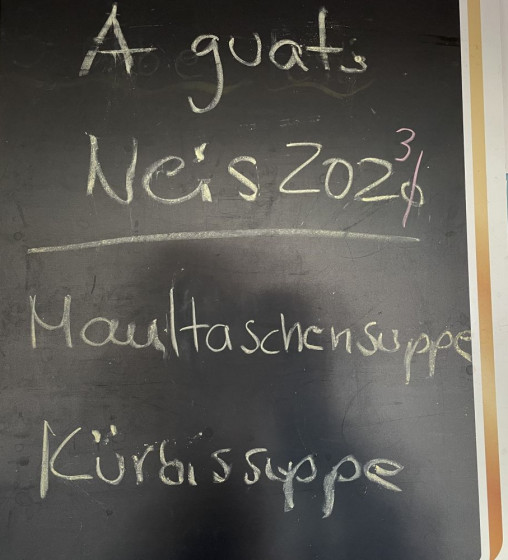 A guats
Neis 2023
Maultaschensuppe
Kürbissuppe